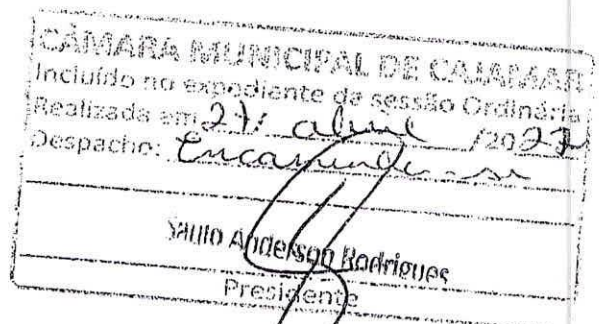 CÂMARA MUNICIPAL DE CAJAMAR
Incluído no expediente da sessão Ordinária
Realizada em 27/ abril /2022
Despacho: Encaminde-se
Saulo Anderson Rodrigues
Presidente